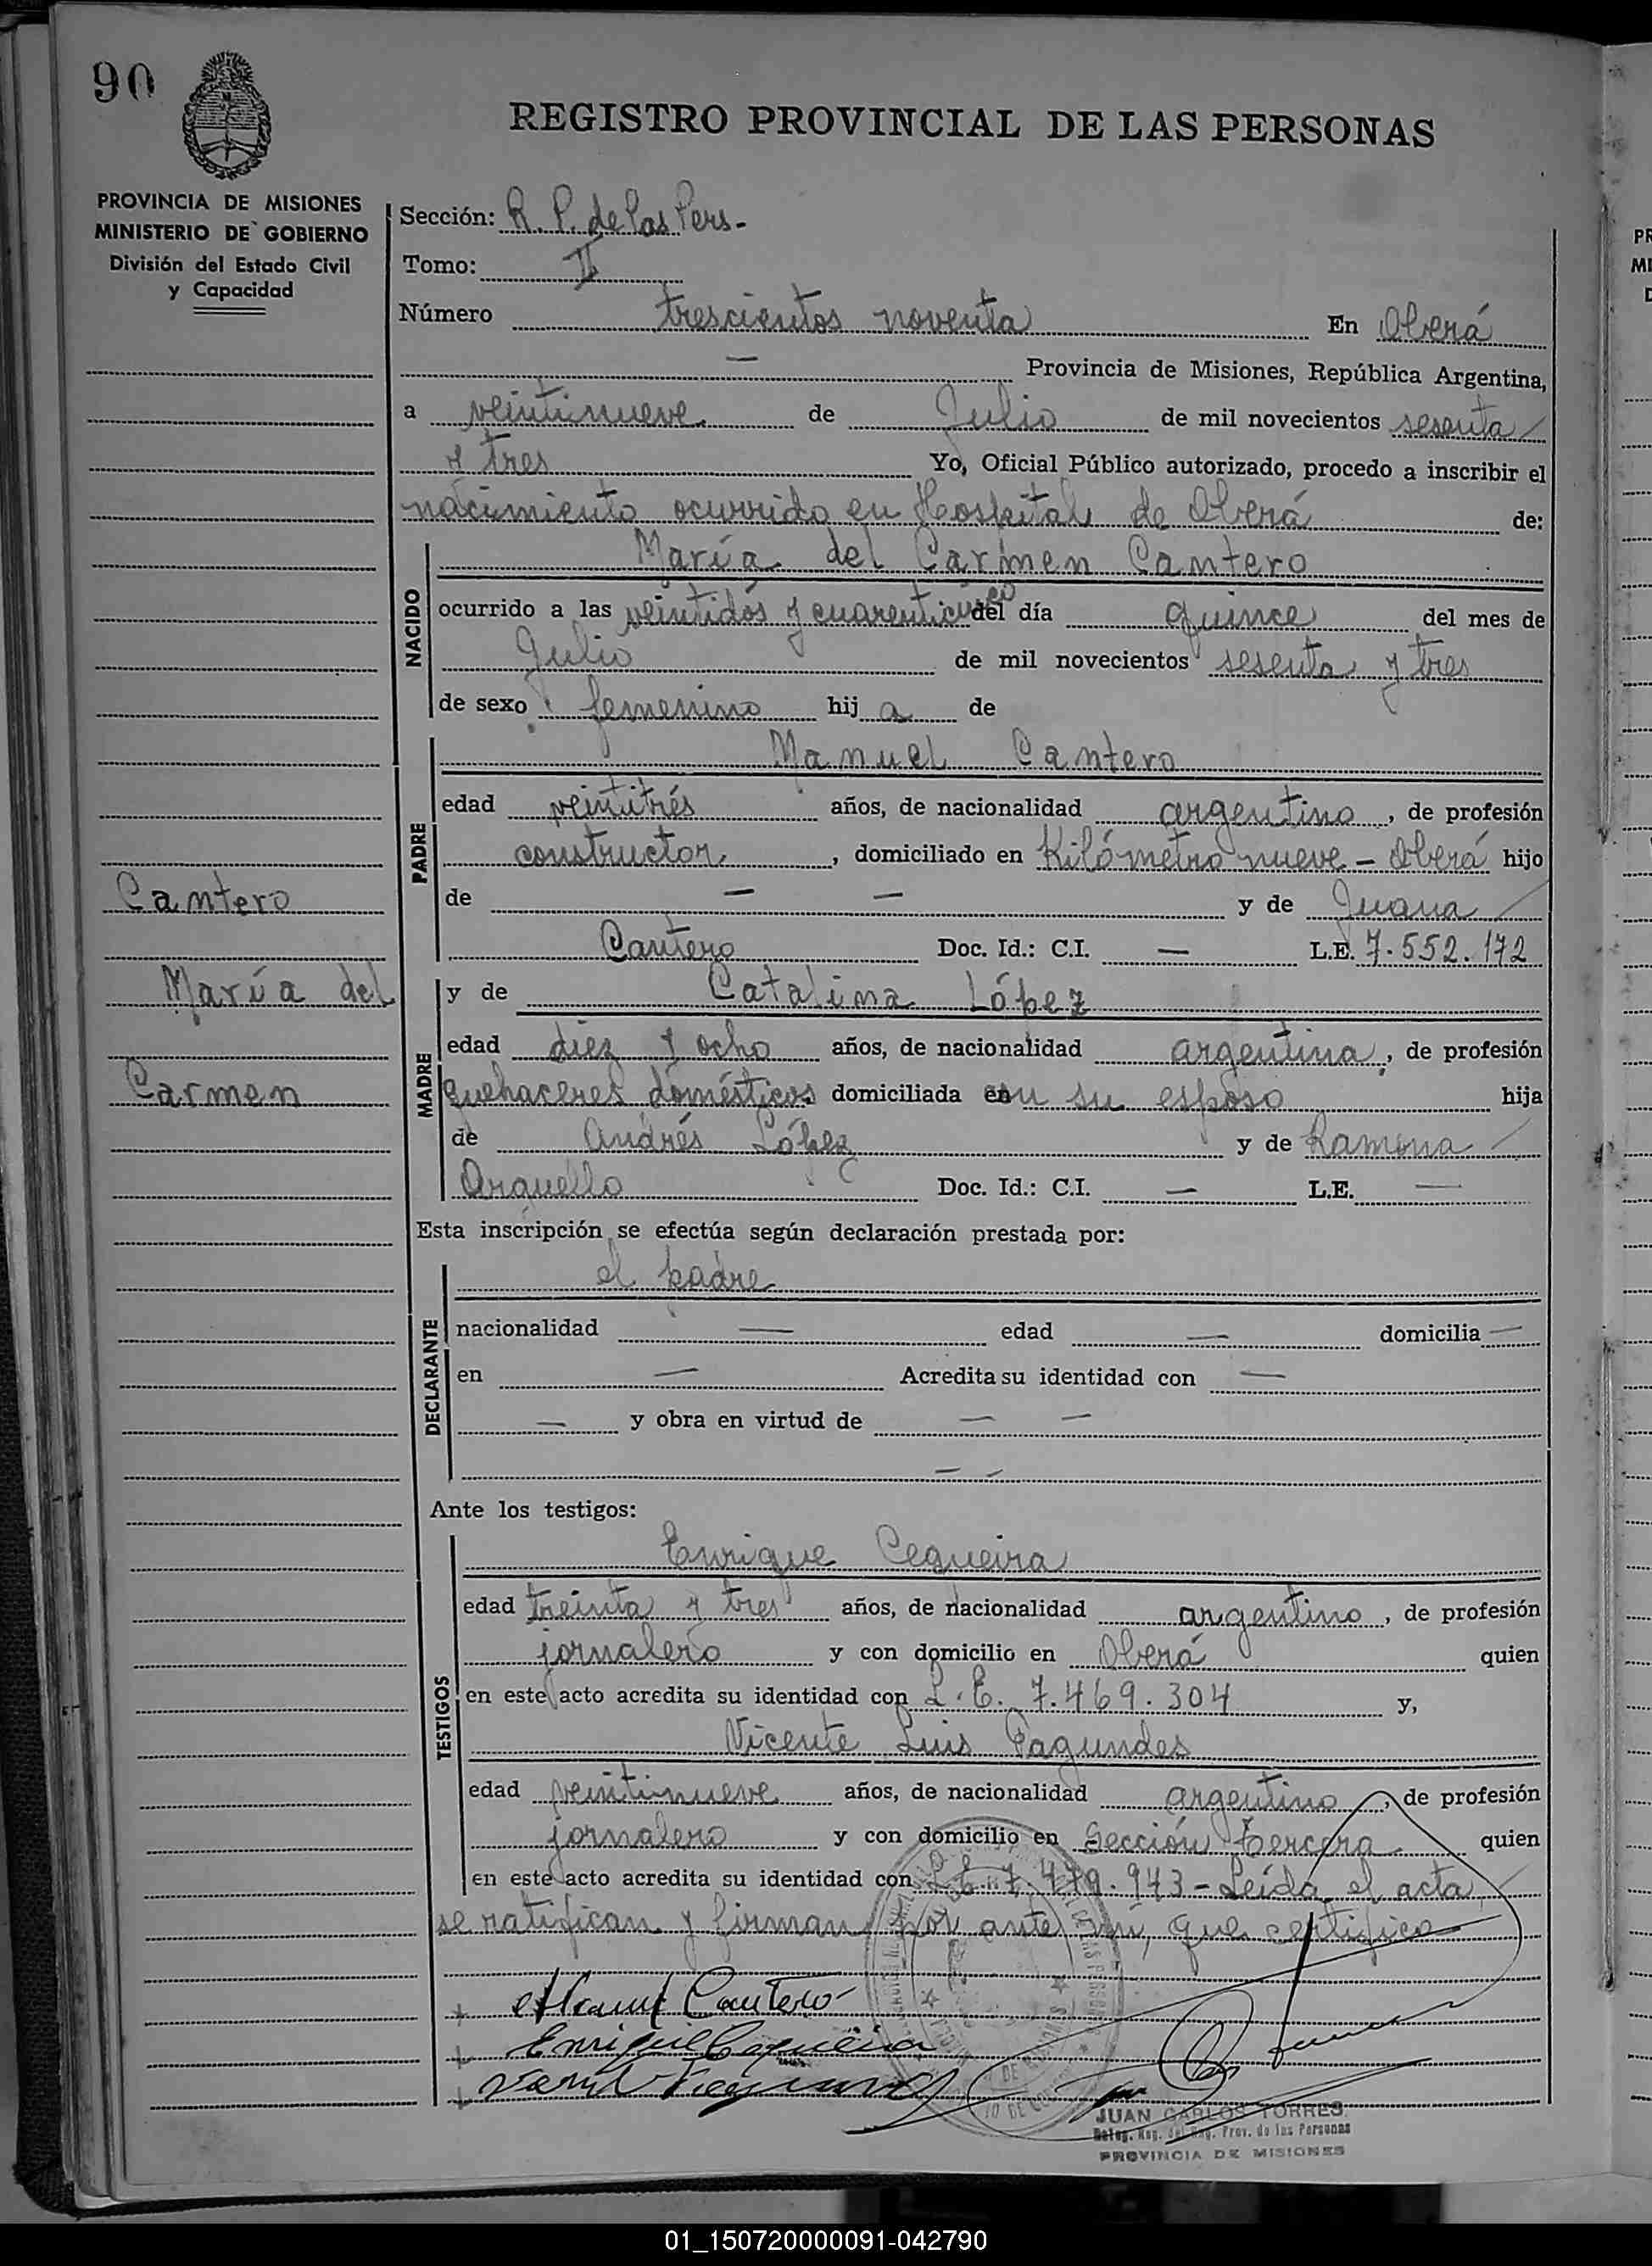 90
REGISTRO PROVINCIAL DE LAS PERSONAS
PROVINCIA DE MISIONES
MINISTERIO DE GOBIERNO
División del Estado Civil
y Capacidad
Sección: R. P. de las Pers.
Tomo: II
Número trescientos noventa En Oberá
— Provincia de Misiones, República Argentina,
a veintinueve de Julio de mil novecientos sesenta
y tres Yo, Oficial Público autorizado, procedo a inscribir el
nacimiento ocurrido en Hospital de Oberá de:
NACIDO
María del Carmen Cantero
ocurrido a las veintidós y cuarenticinco del día quince del mes de
Julio de mil novecientos sesenta y tres
de sexo femenino hij a de
PADRE
Manuel Cantero
edad veintitrés años, de nacionalidad argentino, de profesión
constructor, domiciliado en Kilómetro nueve - Oberá hijo
de — — y de Juana
Cantero Doc. Id.: C.I. — L.E. 7.552.172
Cantero
María del
Carmen
MADRE
y de Catalina López
edad diez y ocho años, de nacionalidad argentina, de profesión
quehaceres domésticos domiciliada con su esposo hija
de Andrés López y de Ramona
Arguello Doc. Id.: C.I. — L.E. —
Esta inscripción se efectúa según declaración prestada por:
DECLARANTE
el padre
nacionalidad — edad — domicilia —
en — Acredita su identidad con —
— y obra en virtud de — —
— —
Ante los testigos:
TESTIGOS
Enrique Cequeira
edad treinta y tres años, de nacionalidad argentino, de profesión
jornalero y con domicilio en Oberá quien
en este acto acredita su identidad con L.E. 7.469.304 y,
Vicente Luis Fagundes
edad veintinueve años, de nacionalidad argentino, de profesión
jornalero y con domicilio en Sección tercera quien
en este acto acredita su identidad con L.E. 7.479.943 - Leída el acta
se ratifican y firman por ante mí, que certifico
Manuel Cantero
Enrique Cequeira
JUAN CARLOS TORRES
Prov. de las Personas
PROVINCIA DE MISIONES
01_150720000091-042790